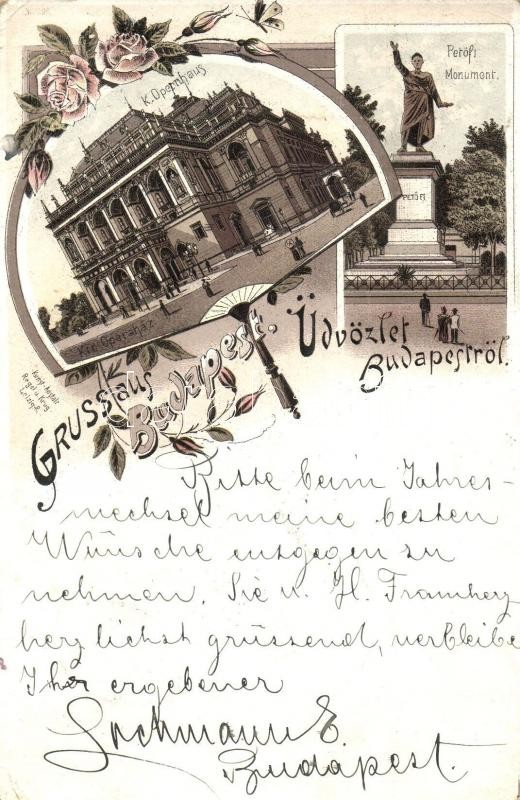 K. Opernhaus
Petőfi
Monument.
PETŐFI
Kir. Operaház
Kunst-Anstalt
Regel u. Krug
Leipzig-R.
GRUSS aus
Budapest.
Üdvözlet
Budapestről.
Bitte beim Jahres-
wechsel meine besten
Wünsche entgegen zu
nehmen. Sie u. H.
herzlichst grüssend, verbleibe
Ihr ergebener
Lochmann E.
Budapest.